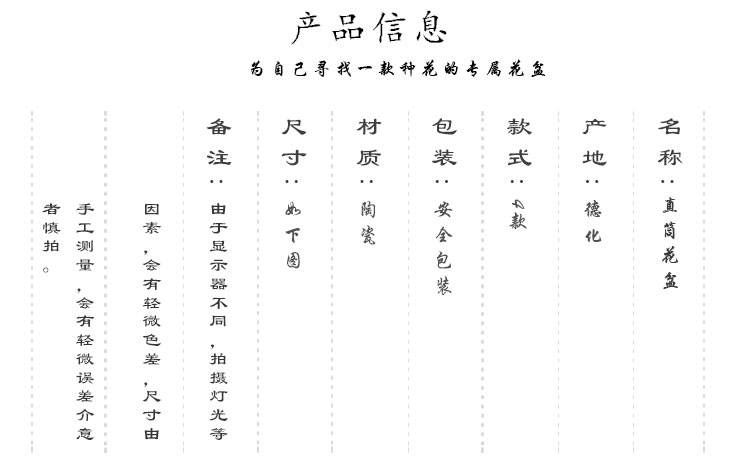 产品信息
为自己寻找一款种花的专属花盆
名称：直筒花盆
产地：德化
款式：4款
包装：安全包装
材质：陶瓷
尺寸：如下图
备注：由于显示器不同，拍摄灯光等
因素，会有轻微色差，尺寸由
手工测量，会有轻微误差介意
者慎拍。